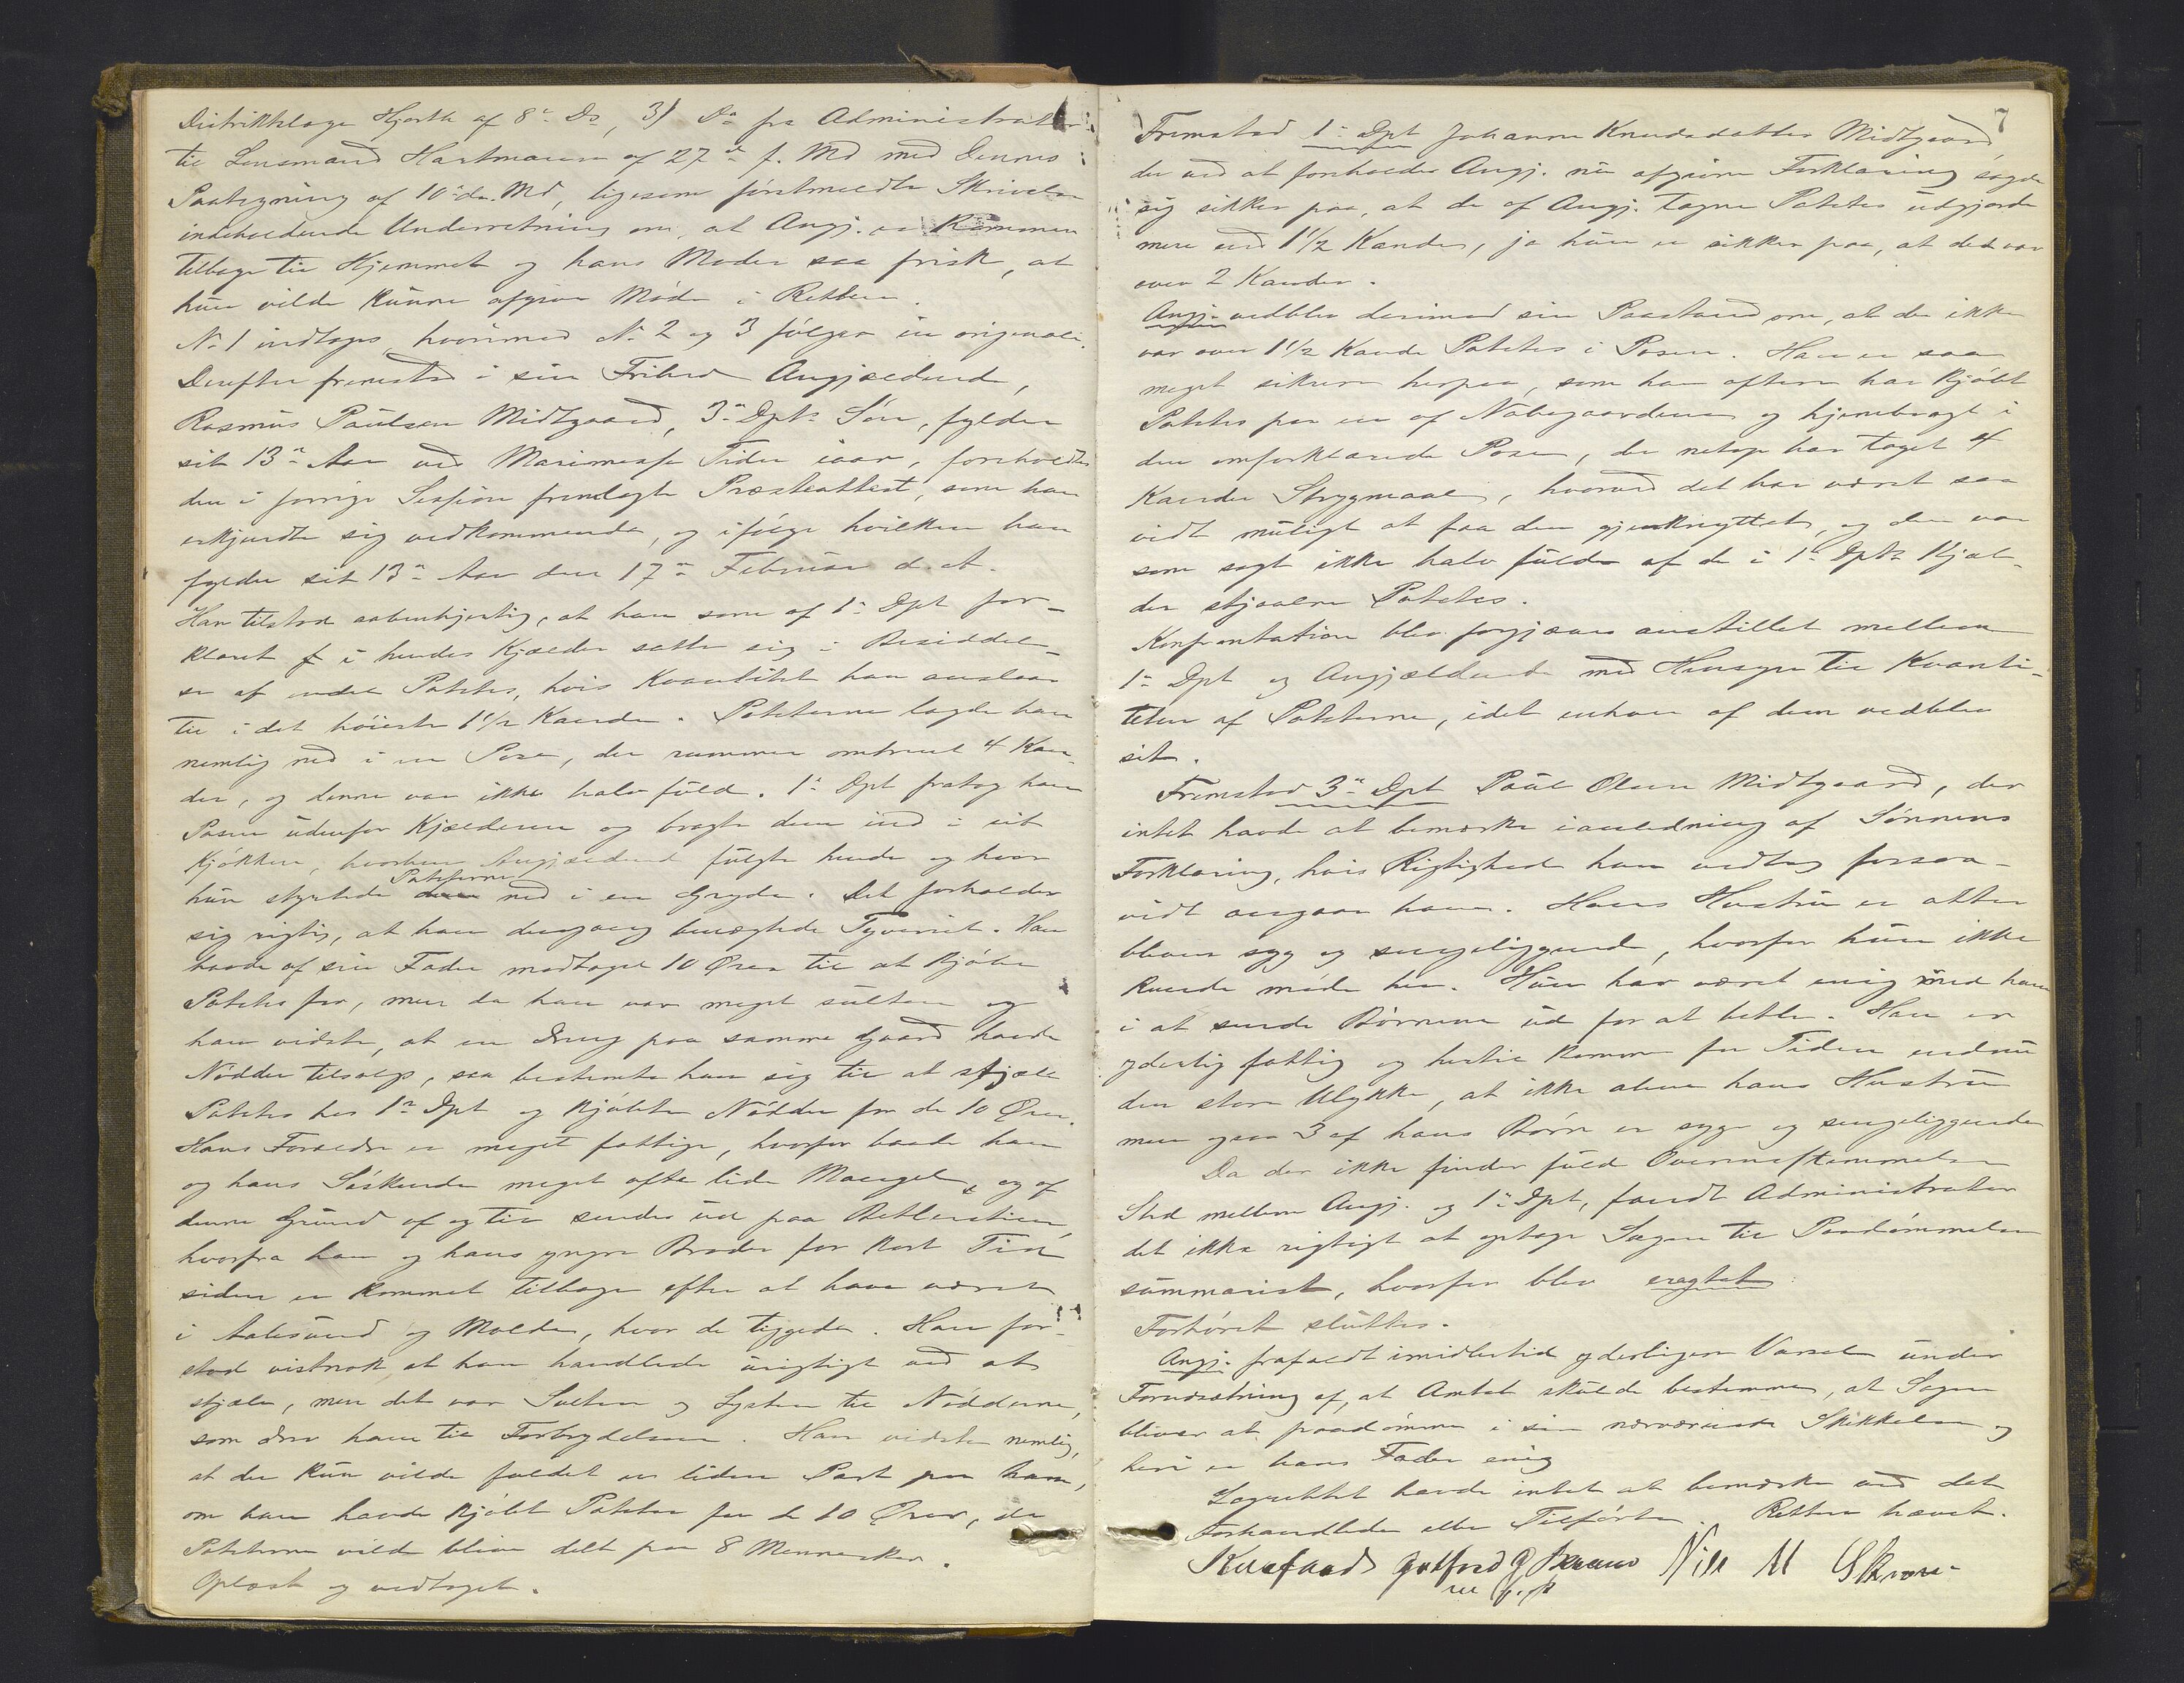 Distriktslæge Hjorth af 8de Ds, 3) Do fra Administrator
til Lensmand Hartmann af 27de f. Md med Dennes
Paategning af 10de ds. Md, ligesom førstmeldte Skrivelse
indeholdende Underretning om, at Angj. er kommen
tilbage til Hjemmet og hans Moder saa frisk, at
hun vilde kunne afgive Møde i Retten.
No 1 indtages hvorimod No 2 og 3 følger in originali.
Derefter fremstod i sin Frihed Angjældende,
Rasmus Paulsen Midtgaard, 3de Dpts Søn, fylder
sit 13de Aar ved Marimesse Tider iaar, foreholdtes
den i forrige Session fremlagte Præsteattest, som han
erkjendte sig vedkommende, og ifølge hvilken han
fylder sit 13de Aar den 17de Februar d. A.
Han tilstod aabenhjertig, at han som af 1ste Dpt for-
klaret i hendes Kjælder satte sig i Besiddel-
se af endel Poteter, hvis Kvantitet han anslaar
til i det høieste 1 1/2 Kande. Poteterne lagde han
nemlig ned i en Pose, der rummer omtrent 4 Kan-
der, og denne var ikke halv fuld. 1ste Dpt fratog ham
Posen udenfor Kjælderen og bragte den ind i sit
Kjøkken, hvorhen Angjældende fulgte hende og hvor
hun styrtede Poteterne ned i en Gryde. Det forholder
sig rigtig, at han dengang benægtede Tyveriet. Han
havde af sin Fader modtaget 10 Ører til at kjøbe
Poteter for, men da han var meget sulten og
han vidste, at en Dreng paa samme Gaard havde
Nødder tilsalgs, saa bestemte han sig til at stjæle
Poteter hos 1ste Dpt og kjøbte Nødder for de 10 Ører.
Hans Forældre er meget fattige, hvorfor baade han
og hans Søskende meget ofte lide Mangel, og af
denne Grund af og til sendes ud paa Betlersti,
hvorfra han og hans yngre Broder for kort Tid
siden er kommet tilbage efter at have været
i Aalesund og Molde, hvor de tiggede. Han for-
stod vistnok at han handlede urigtigt ved at
stjæle, men det var Sulten og Lysten til Nødderne,
som drev ham til Forbrydelsen. Han vidste nemlig,
at der kun vilde faldet en liden Part paa ham,
om han havde kjøbt Poteter for de 10 Ører, da
Poteterne vilde blive delt paa 8 Mennesker.
Oplæst og vedtaget.
7
Fremstod 1ste Dpt Johanne Knudsdatter Midtgaard,
der ved at foreholdes Angj. nu afgivne Forklaring sagde
sig sikker paa, at de af Angj. tagne Poteter udgjorde
mere end 1 1/2 Kande, ja hun er sikker paa, at det var
over 2 Kander.
Angj. vedblev derimod sin Paastand om, at der ikke
var over 1 1/2 Kande Poteter i Posen. Han er saa
meget sikrere herpaa, som han oftere har kjøbt
Poteter paa en af Nabogaardene og hjembragt i
den omforklarede Pose, der netop har taget 4
Kander Strygmaal, hvorved det har været saa
vidt muligt at faa den gjenknyttet, og den var
som sagt ikke halv fuld af de i 1ste Dpts Kjæl-
der stjaalne Poteter.
Konfrontation blev forgjæves anstillet mellem
1ste Dpt og Angjældende med Hensyn til Kvanti-
teten af Poteterne, idet enhver af dem vedblev
sit.
Fremstod 3de Dpt Paul Olsen Midtgaard, der
intet havde at bemærke i anledning af Sønnens
Forklaring, hvis Rigtighed han vedtog forsaa-
vidt angaar ham. Hans Hustru er atter
bleven syg og sengeliggende, hvorfor hun ikke
kunde møde her. Hun har været enig med ham
i at sende Børnene ud for at betle. Han er
yderlig fattig og hertil kommer for Tiden endnu
den store Ulykke, at ikke alene hans Hustru
men ogsaa 3 af hans Børn er syge og sengeliggende
Da der ikke finder fuld Overensstemmelse
Sted mellem Angj. og 1ste Dpt, fandt Administrator
det ikke rigtigt at optage Sagen til Paadømmelse
summarisk, hvorfor blev eragtet:
Forhøret sluttes.
Angj. frafaldt imidlertid yderligere Varsel under
Forudsætning af, at Amtet skulde bestemme, at Sagen
bliver at paadømme i sin nærværende Skikkelse og
heri er hans Fader enig
Lagrettet havde intet at bemærke ved det
Forhandlede eller Tilførte. Retten hævet.
Nils M
m. p. p.